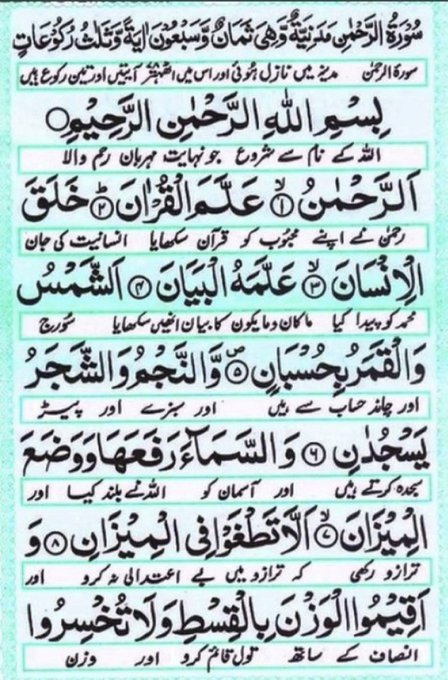 سُوْرَةُ الرَّحْمٰنِ مَدَنِيَّةٌ وَّهِيَ ثَمَانٌ وَّسَبْعُوْنَ اٰيَةً وَّثَلٰثُ رُكُوْعَاتٍ
سورۂ الرحمٰن مدینہ میں نازل ہوئی اور اس میں اٹھہتر آیتیں اور تین رکوع ہیں
بِسْمِ اللّٰهِ الرَّحْمٰنِ الرَّحِيْمِ
اللہ کے نام سے شروع جو نہایت مہربان رحم والا
اَلرَّحْمٰنُ ۙ﴿۱﴾ عَلَّمَ الْقُرْاٰنَ ؕ﴿۲﴾ خَلَقَ
رحمٰن نے اپنے محبوب کو قرآن سکھایا انسانیت کی جان
الْاِنْسَانَ ۙ﴿۳﴾ عَلَّمَهُ الْبَيَانَ ﴿۴﴾ اَلشَّمْسُ
محمد کو پیدا کیا ماکان ومایکون کا بیان انھیں سکھایا سورج
وَالْقَمَرُ بِحُسْبَانٍ ۪﴿۵﴾ وَّالنَّجْمُ وَالشَّجَرُ
اور چاند حساب سے ہیں اور سبزے اور پیڑ
يَسْجُدٰنِ ﴿۶﴾ وَالسَّمَآءَ رَفَعَهَا وَوَضَعَ
سجدہ کرتے ہیں اور آسمان کو اللہ نے بلند کیا اور
الْمِيْزَانَ ۙ﴿۷﴾ اَلَّا تَطْغَوْا فِي الْمِيْزَانِ ﴿۸﴾ وَ
ترازو رکھی کہ ترازو میں بے اعتدالی نہ کرو اور
اَقِيْمُوا الْوَزْنَ بِالْقِسْطِ وَلَا تُخْسِرُوا
انصاف کے ساتھ تول قائم کرو اور وزن